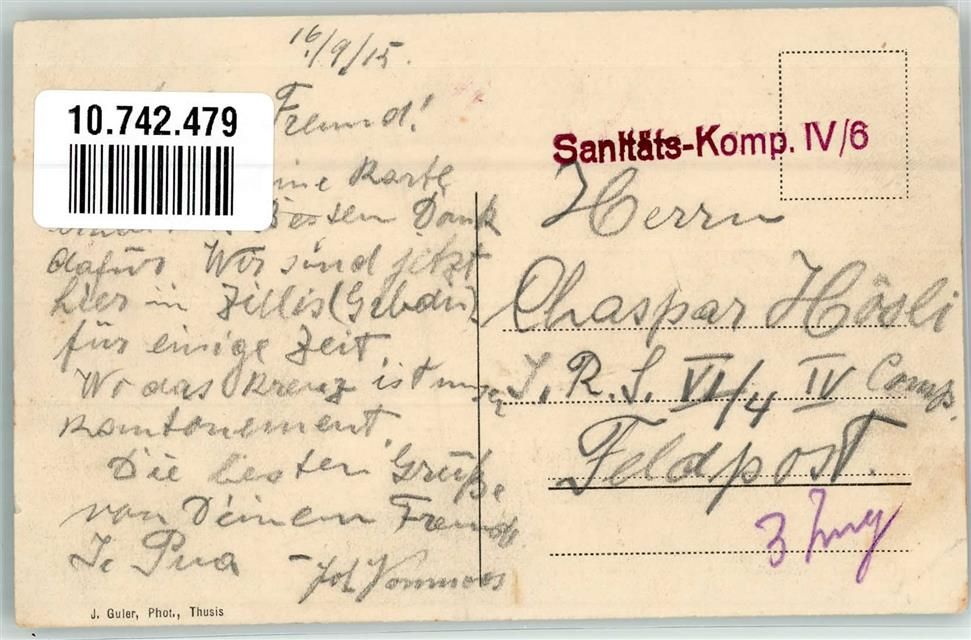 16/9/15.
Freund!
10.742.479
Karte
besten Dank
dafür. Wir sind jetzt
hier in Zillis
für einige Zeit.
Wo das Kreuz ist unser
Kantonement.
Die besten Grüße
von Deinem Freunde
Joh
J. Guler, Phot., Thusis
Sanitäts-Komp. IV/6
Herrn
Chaspar Hösli
I. R. S. VI/4 IV Comp.
Feldpost.
3 Zug